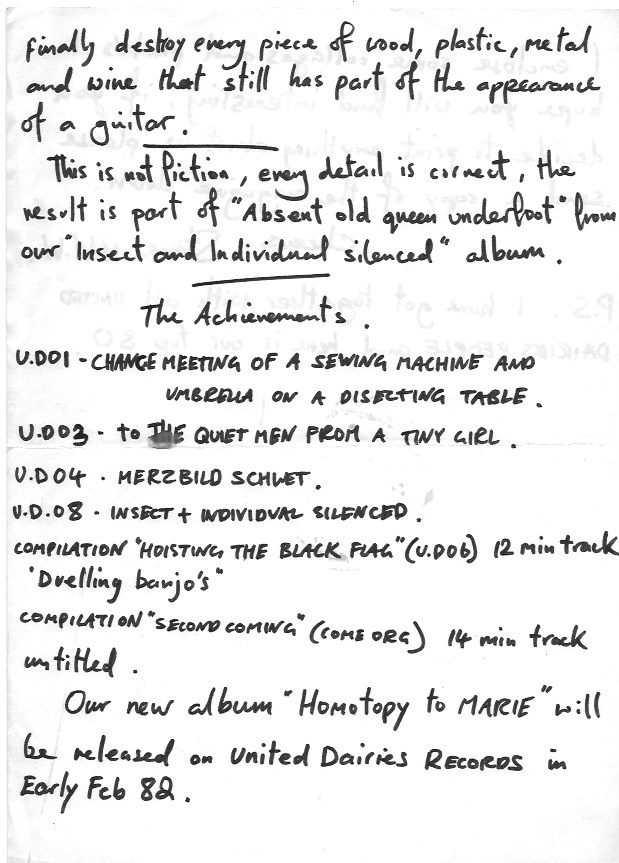 finally destroy every piece of wood, plastic, metal
and wine that still has part of the appearance
of a guitar.
This is not fiction, every detail is correct, the
result is part of "Absent old queen underfoot" from
our "Insect and Individual silenced" album.
The Achievements.
U.D01 - CHANGE MEETING OF A SEWING MACHINE AND
UMBRELLA ON A DISECTING TABLE.
U.D03 - to THE QUIET MEN FROM A TINY GIRL.
U.D04 - MERZBILD SCHWET.
U.D.08 - INSECT + INDIVIDUAL SILENCED.
COMPILATION "HOISTING THE BLACK FLAG" (U.D06) 12 min track
"Duelling banjo's"
COMPILATION "SECOND COMING" (COME ORG) 14 min track
untitled.
Our new album "Homotopy to MARIE" will
be released on United Dairies RECORDS in
Early Feb 82.